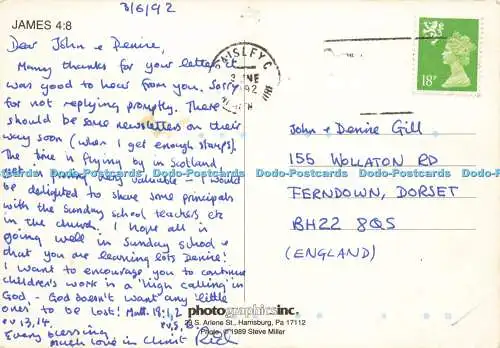 3/6/92
JAMES 4:8
Dear John & Denise,
Many thanks for your letter, it
was good to hear from you. Sorry
for not replying promptly. There
should be some newsletters on their
way soon (when I get enough stamps).
The time is flying by in Scotland,
being very valuable - I would
be delighted to share some principals
with the Sunday school teachers etc
in the church. I hope all is
going well in Sunday school &
that you are learning lots Denise!
I want to encourage you to continue
children's work in a 'high calling' in
God - God doesn't want any 'little
ones' to be lost! Matt. 18:1,2
vv 13,14. vv,5,
Every blessing
Much love in Christ
PAISLEY C
3 JNE
1992
18P
John & Denise Gill
155 WOLLATON RD
FERNDOWN, DORSET
BH22 8QS
(ENGLAND)
photographicsinc.
S. Arlene St., Harrisburg, Pa 17112
Photo © 1989 Steve Miller
Dodo-Postcards Dodo-Postcards Dodo-Postcards Dodo-Postcards Dodo-Postcards